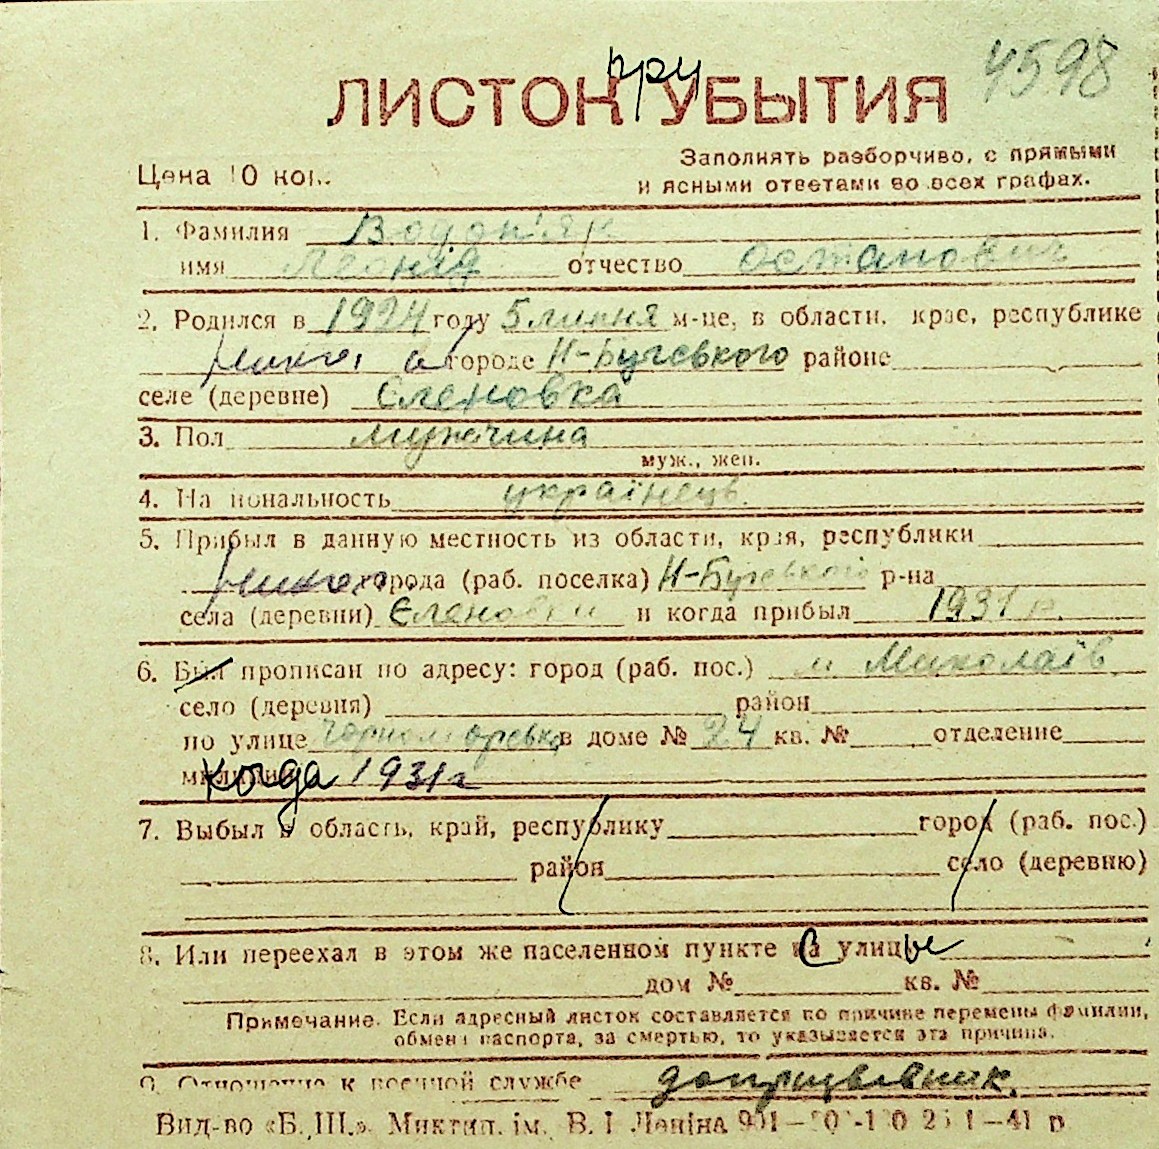 при 4598
ЛИСТОК УБЫТИЯ
Заполнять разборчиво, с прямыми
Цена 10 коп.
и ясными ответами во всех графах.
1. Фамилия Водоп'як
имя Леонід отчество Остапович
2. Родился в 1924 году 5 липня м-це, в области, крае, республике
Никол в городе Н-Бугського районе
селе (деревне) Єленовка
3. Пол мужчина
муж., жен.
4. Национальность українець
5. Прибыл в данную местность из области, края, республики
Никол города (раб. поселка) Н-Бугського р-на
села (деревни) Єленовки и когда прибыл 1931 р.
6. Был прописан по адресу: город (раб. пос.) м. Миколаїв
село (деревня) район
по улице Чорноморська в доме № 24 кв. № отделение
милиции когда 1931 г
7. Выбыл в область, край, республику город (раб. пос.)
район село (деревню)
8. Или переехал в этом же населенном пункте на С улицы
дом № кв. №
Примечание. Если адресный листок составляется по причине перемены фамилии,
обмена паспорта, за смертью, то указывается эта причина.
9. Отношение к военной службе допризывник.
Вид-во «Б. Ш.» Миктип. ім. В. І Леніна